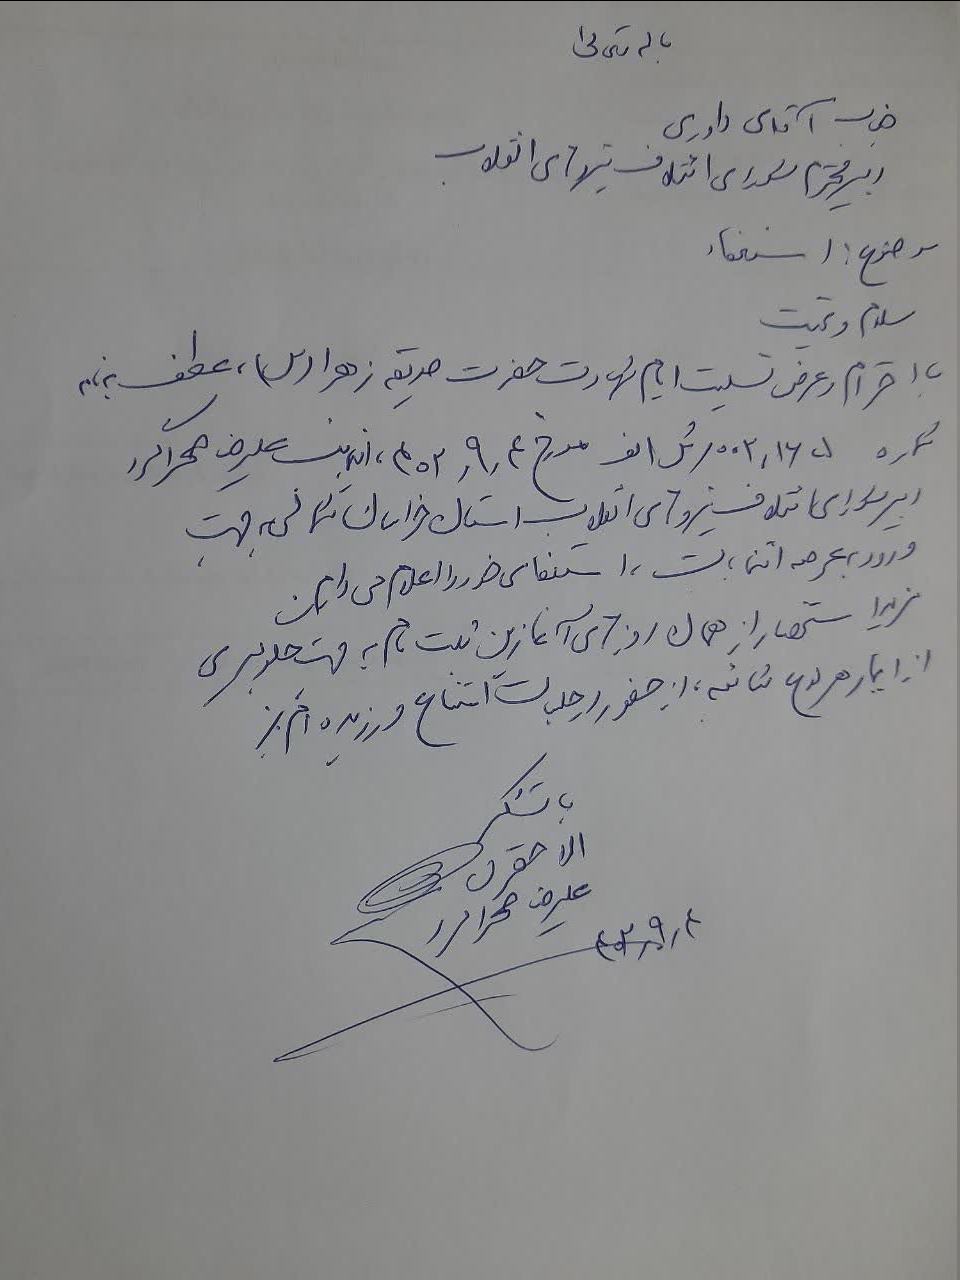 باسمه تعالی
جناب آقای داوری
دبیر محترم شورای ائتلاف نیروهای انقلاب
موضوع: استعفاء
سلام و تحیت
با احترام و عرض تسلیت ایام شهادت حضرت صدیقه زهرا (س)، عطف به نامه
شماره ۰۰۲٫۱۶۵ مورخ ۴۰۲٫۹٫۴، اینجانب علیرضا صحراگرد
دبیر شورای ائتلاف نیروهای انقلاب استان خراسان شمالی به جهت
ورود به عرصه انتخابات، استعفای خود را اعلام می دارم
مزید استحضار از همان روزهای آغازین ثبت نام به جهت جلوگیری
از ایجاد هر نوع شائبه، از حضور در جلسات امتناع ورزیده ام
با تشکر
الاحقر
علیرضا صحراگرد
۴۰۲٫۹٫۴